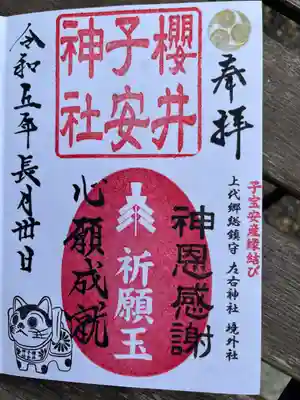 奉拝
子宝安産縁結び
上代郷総鎮守 左右神社 境外社
櫻井
子安
神社
神恩感謝
祈願玉
心願成就
令和五年長月卅日